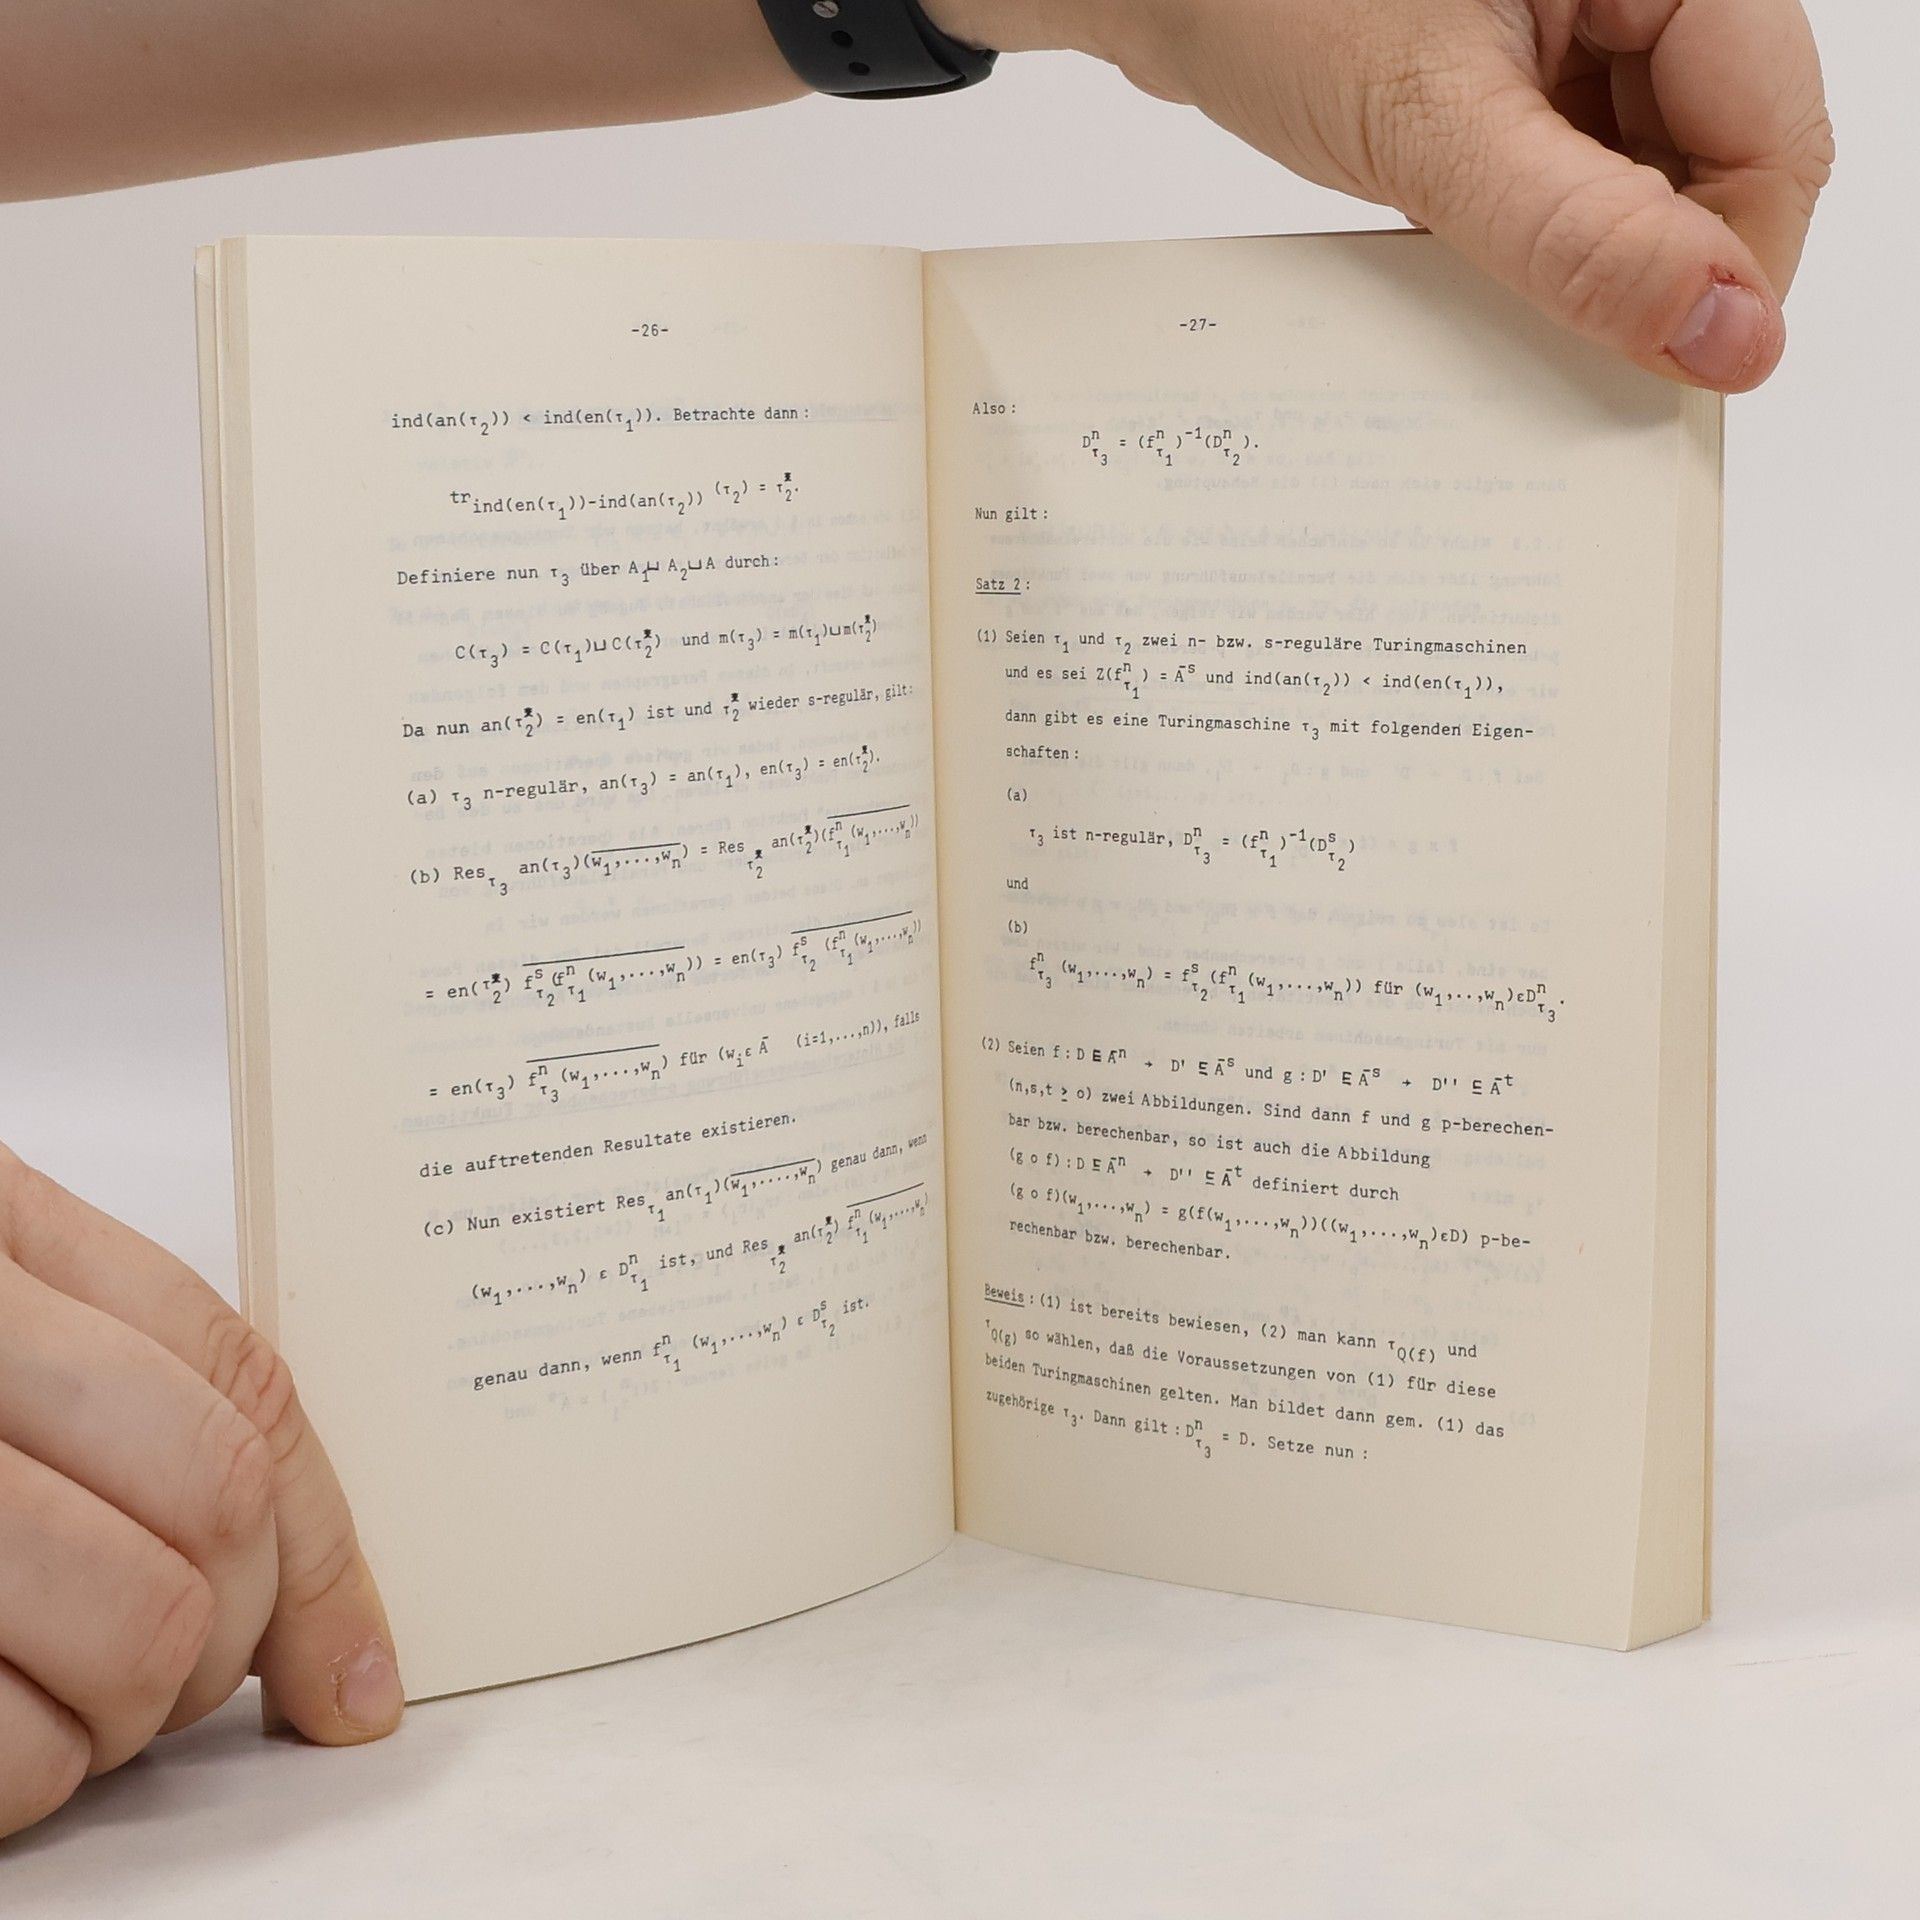 -26-
ind(an(τ₂)) < ind(en(τ₁)). Betrachte dann:
tr_ind(en(τ₁))-ind(an(τ₂)) (τ₂) = τ₂*.
Definiere nun τ₃ über A₁⊔ A₂⊔A durch:
C(τ₃) = C(τ₁)⊔C(τ₂*) und m(τ₃) = m(τ₁)⊔m(τ₂*)
Da nun an(τ₂*) = en(τ₁) ist und τ₂* wieder s-regulär, gilt:
(a) τ₃ n-regulär, an(τ₃) = an(τ₁), en(τ₃) = en(τ₂*).
(b) Res_τ₃ an(τ₃)(w₁,...,wₙ) = Res_τ₂* an(τ₂*)(fⁿ_τ₁ (w₁,...,wₙ))
= en(τ₂*) fˢ_τ₂ (fⁿ_τ₁ (w₁,...,wₙ)) = en(τ₃) fˢ_τ₂ (fⁿ_τ₁ (w₁,...,wₙ))
= en(τ₃) fⁿ_τ₃ (w₁,...,wₙ) für (wᵢ ε Ā (i=1,...,n)), falls
die auftretenden Resultate existieren.
(c) Nun existiert Res_τ₁ an(τ₁)(w₁,....,wₙ) genau dann, wenn
(w₁,...,wₙ) ε Dⁿ_τ₁ ist, und Res_τ₂* an(τ₂*) fⁿ_τ₁ (w₁,...,wₙ)
genau dann, wenn fⁿ_τ₁ (w₁,...,wₙ) ε Dˢ_τ₂ ist.
-27-
Also:
Dⁿ_τ₃ = (fⁿ_τ₁)⁻¹(Dⁿ_τ₂).
Nun gilt:
Satz 2:
(1) Seien τ₁ und τ₂ zwei n- bzw. s-reguläre Turingmaschinen
und es sei Z(fⁿ_τ₁) = Āˢ und ind(an(τ₂)) < ind(en(τ₁)),
dann gibt es eine Turingmaschine τ₃ mit folgenden Eigen-
schaften:
(a)
τ₃ ist n-regulär, Dⁿ_τ₃ = (fⁿ_τ₁)⁻¹(Dˢ_τ₂)
und
(b)
fⁿ_τ₃ (w₁,...,wₙ) = fˢ_τ₂ (fⁿ_τ₁ (w₁,...,wₙ)) für (w₁,..,wₙ)εDⁿ_τ₃.
(2) Seien f:D ⊆ Āⁿ → D' ⊆ Āˢ und g:D' ⊆ Āˢ → D'' ⊆ Āᵗ
(n,s,t ≥ o) zwei Abbildungen. Sind dann f und g p-berechen-
bar bzw. berechenbar, so ist auch die Abbildung
(g o f):D ⊆ Āⁿ → D'' ⊆ Āᵗ definiert durch
(g o f)(w₁,...,wₙ) = g(f(w₁,...,wₙ))((w₁,...,wₙ)εD) p-be-
rechenbar bzw. berechenbar.
Beweis:(1) ist bereits bewiesen, (2) man kann τ_Q(f) und
τ_Q(g) so wählen, daß die Voraussetzungen von (1) für diese
beiden Turingmaschinen gelten. Man bildet dann gem. (1) das
zugehörige τ₃. Dann gilt:Dⁿ_τ₃ = D. Setze nun: